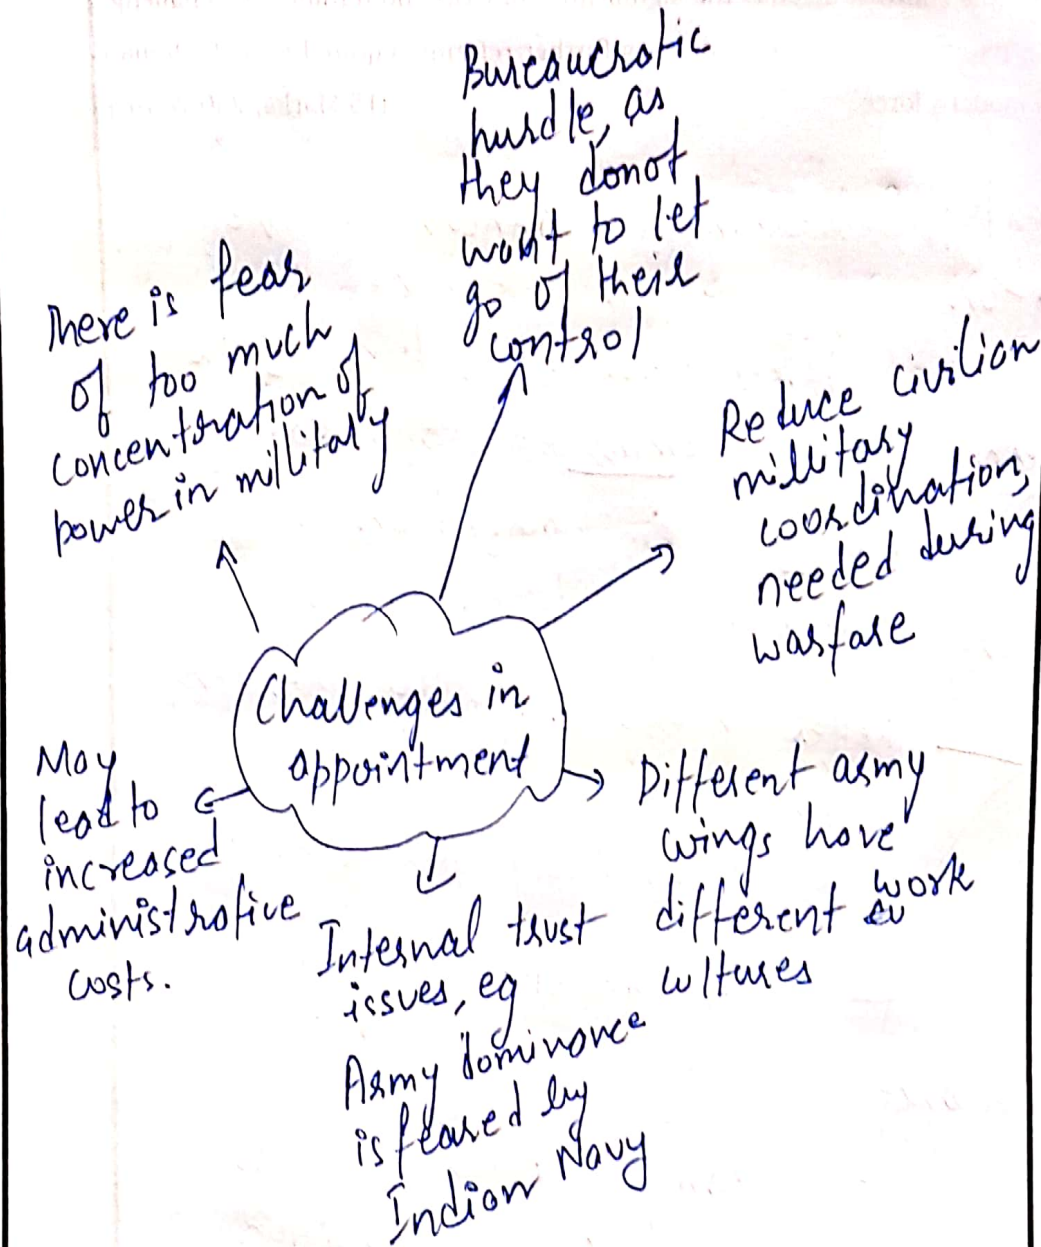 Bureaucratic
hurdle, as
they donot
want to let
go of their
control
There is fear
of too much
concentration of
power in millitary
Reduce civilian
millitary
coordination,
needed during
warfare
Challenges in
appointment
May
lead to
increased
administrative
costs.
Different army
wings have
different work
cultures
Internal trust
issues, eg
Army dominance
is feared by
Indian Navy